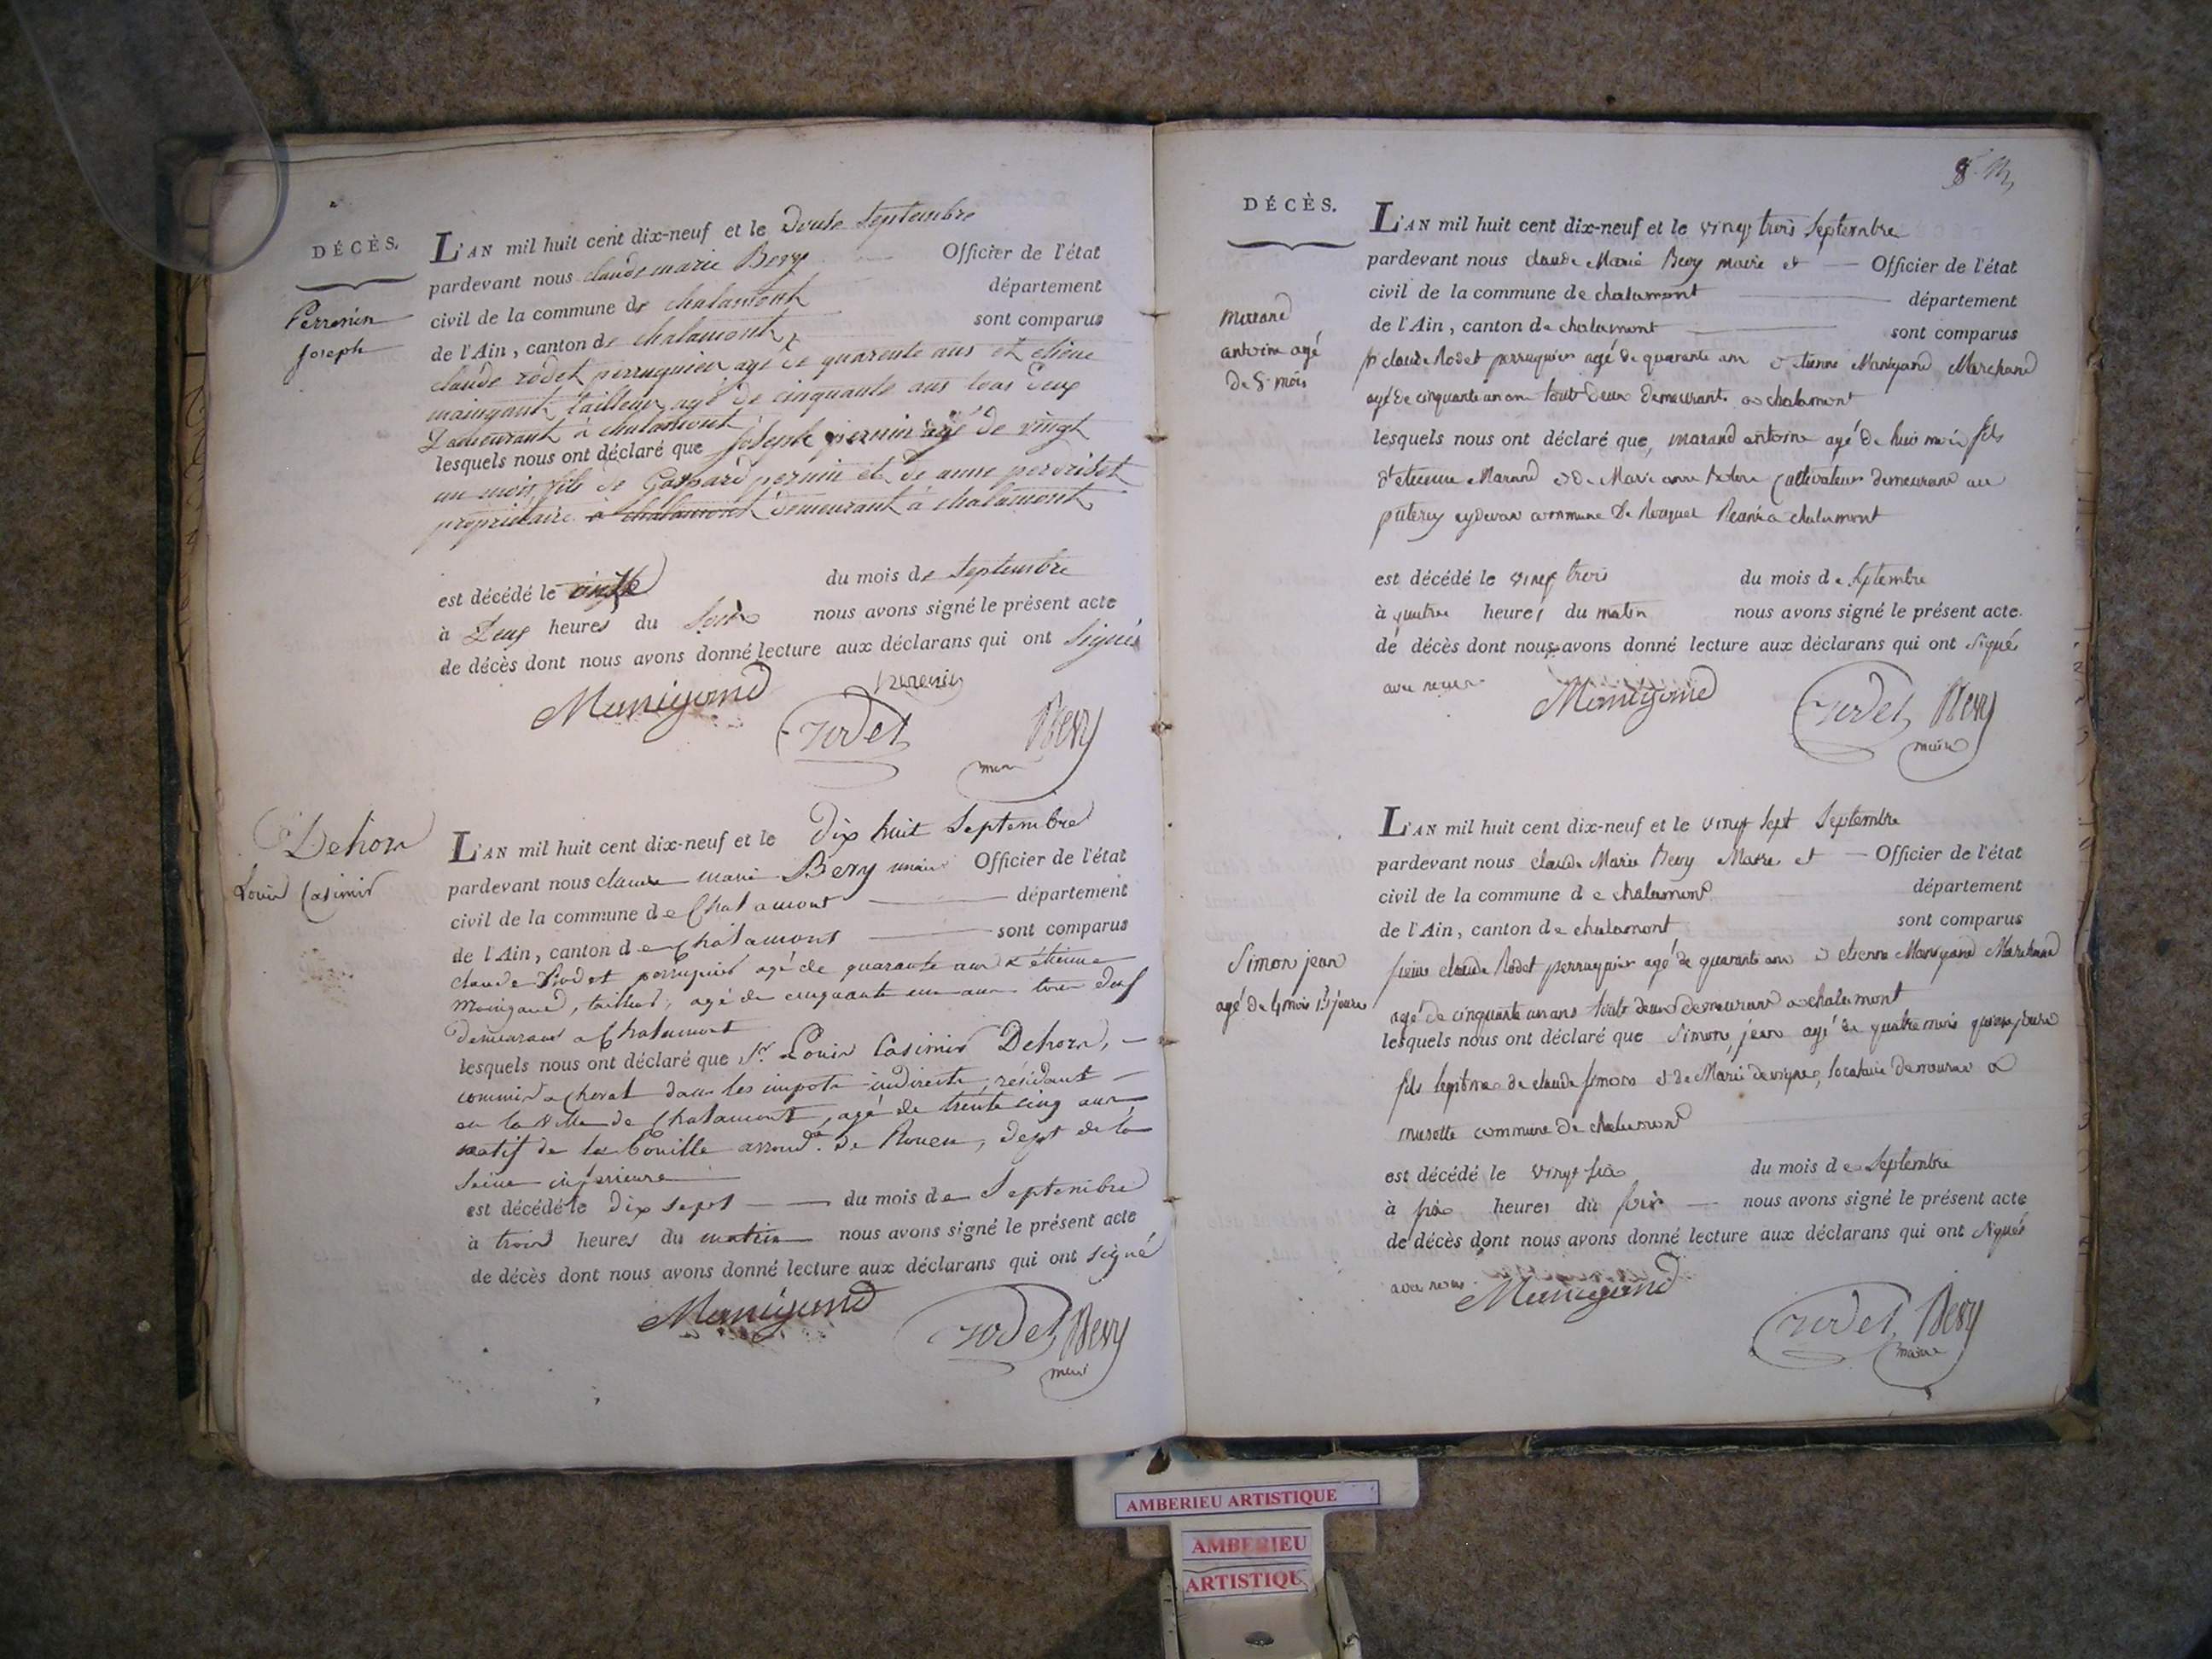 DÉCÈS.
Perrenin
Joseph
L'AN mil huit cent dix-neuf et le Douse Septembre
pardevant nous claude marie Bevy Officier de l'état
civil de la commune de chalamont département
de l'Ain, canton de chalamont sont comparus
claude rodet perruquier agé de quarente ans et etiene
maingant tailleur agé de cinquante ans tous deux
Demeurant à chalamont
lesquels nous ont déclaré que Joseph pernin agé de vingt
un mois fils de Gaspard pernin et de anne perdriset
propriétaire à chalamont demeurant à chalamont
est décédé le du mois de Septembre
à Deux heures du Soir nous avons signé le présent acte
de décès dont nous avons donné lecture aux déclarans qui ont Signés
Manigand
rodet Bevy
Dehors
Louis Casimir
L'AN mil huit cent dix-neuf et le Dix huit Septembre
pardevant nous claude marie Bevy maire Officier de l'état
civil de la commune de Chalamont département
de l'Ain, canton de Chalamont sont comparus
claude Rodet perruquier agé de quarante ans & étienne
Manigand, tailleur, agé de cinquante un ans tous deux
demeurant a Chalamont
lesquels nous ont déclaré que Sr. Louis Casimir Dehors,
commis a cheval dans les impots indirects, résidant
en la ville de Chalamont, agé de trente cinq ans
natif de la bouille arrond.t de Rouen, dept de la
Seine inferieure
est décédé le dix sept du mois de Septembre
à trois heures du matin nous avons signé le présent acte
de décès dont nous avons donné lecture aux déclarans qui ont signé
Manigand
rodet Bevy
maire
DÉCÈS.
marand
antoine agé
De 8 mois
L'AN mil huit cent dix-neuf et le vingt trois Septembre
pardevant nous claude Marie Bevy maire et Officier de l'état
civil de la commune de chalamont département
de l'Ain, canton de chalamont sont comparus
claude Rodet perruquier agé de quarante ans etienne Manigand Marchand
agé de cinquante un ans tout deux demeurant a chalamont
lesquels nous ont déclaré que, marand antoine agé de huit mois fils
d'etienne Marand et de Marie anne cultivateur demeurant au
commune De a chalamont
est décédé le vingt trois du mois de Septembre
à quatre heures du matin nous avons signé le présent acte.
de décès dont nous avons donné lecture aux déclarans qui ont Signés
avec nous
Manigand
rodet Bevy
maire
Simon jean
agé de 4 mois 15 jours
L'AN mil huit cent dix-neuf et le vingt sept Septembre
pardevant nous claude Marie Bevy Maire et Officier de l'état
civil de la commune de chalamont département
de l'Ain, canton de chalamont sont comparus
claude Rodet perruquier agé de quarante ans etienne Manigand Marchand
agé de cinquante un ans tout deux demeurant a chalamont
lesquels nous ont déclaré que Simon, jean agé de quatre mois quinze jours
fils legitime de claude simon et de Marie devigne, locataire demeurant a
musette commune de chalamont
est décédé le vingt six du mois de Septembre
à six heures du soir nous avons signé le présent acte
de décès dont nous avons donné lecture aux déclarans qui ont Signés
avec nous
Manigand
rodet Bevy
maire
AMBERIEU ARTISTIQUE
AMBERIEU
ARTISTIQUE